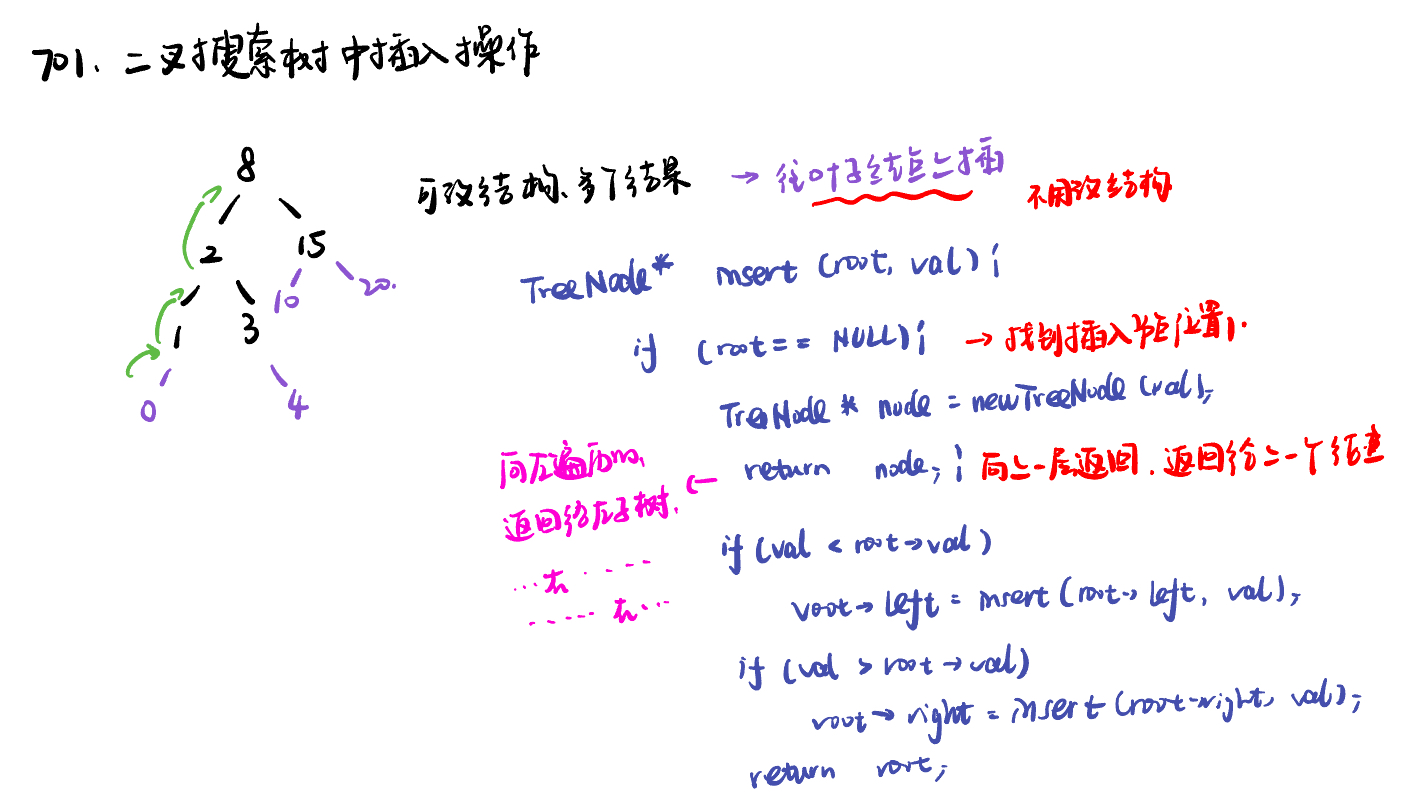 701. 二叉搜索树中插入操作
8
可改结构、多个结果 → 往叶子结点上插
不用改结构
2 15
10 20.
1 3
0 4
TreeNode* insert (root, val) ;
if (root == NULL) ; → 找到插入的位置,.
TreeNode * node = new TreeNode (val);
return node; ; 向上一层返回. 返回给上一个结点
向左遍历的,
返回给左子树.
...右.....
..... 右...
if (val < root→val)
root→left = insert (root→left, val);
if (val > root→val)
root→right = insert (root→right, val);
return root;